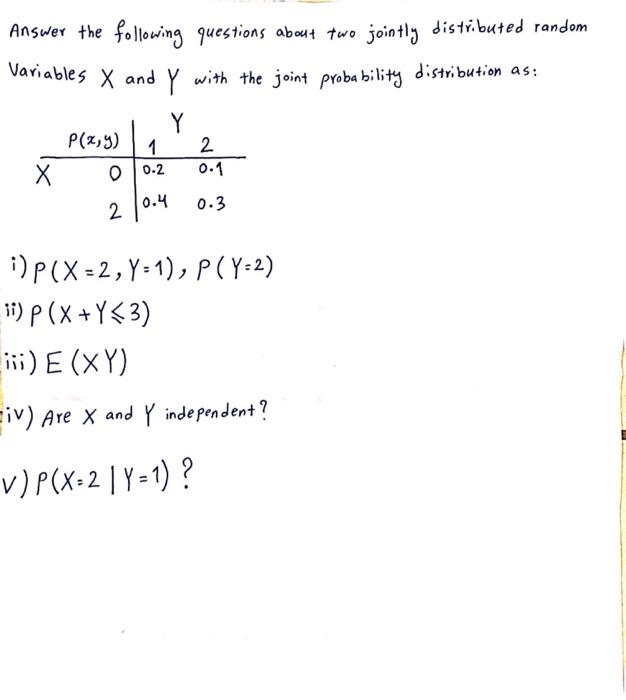 Answer the following questions about two jointly distributed random
Variables X and Y with the joint probability distribution as:
Y
P(x,y) 1 2
X 0 0.2 0.1
2 0.4 0.3
i) P(X=2, Y=1), P(Y=2)
ii) P(X+Y≤3)
iii) E(XY)
iv) Are X and Y independent?
v) P(X=2 | Y=1) ?